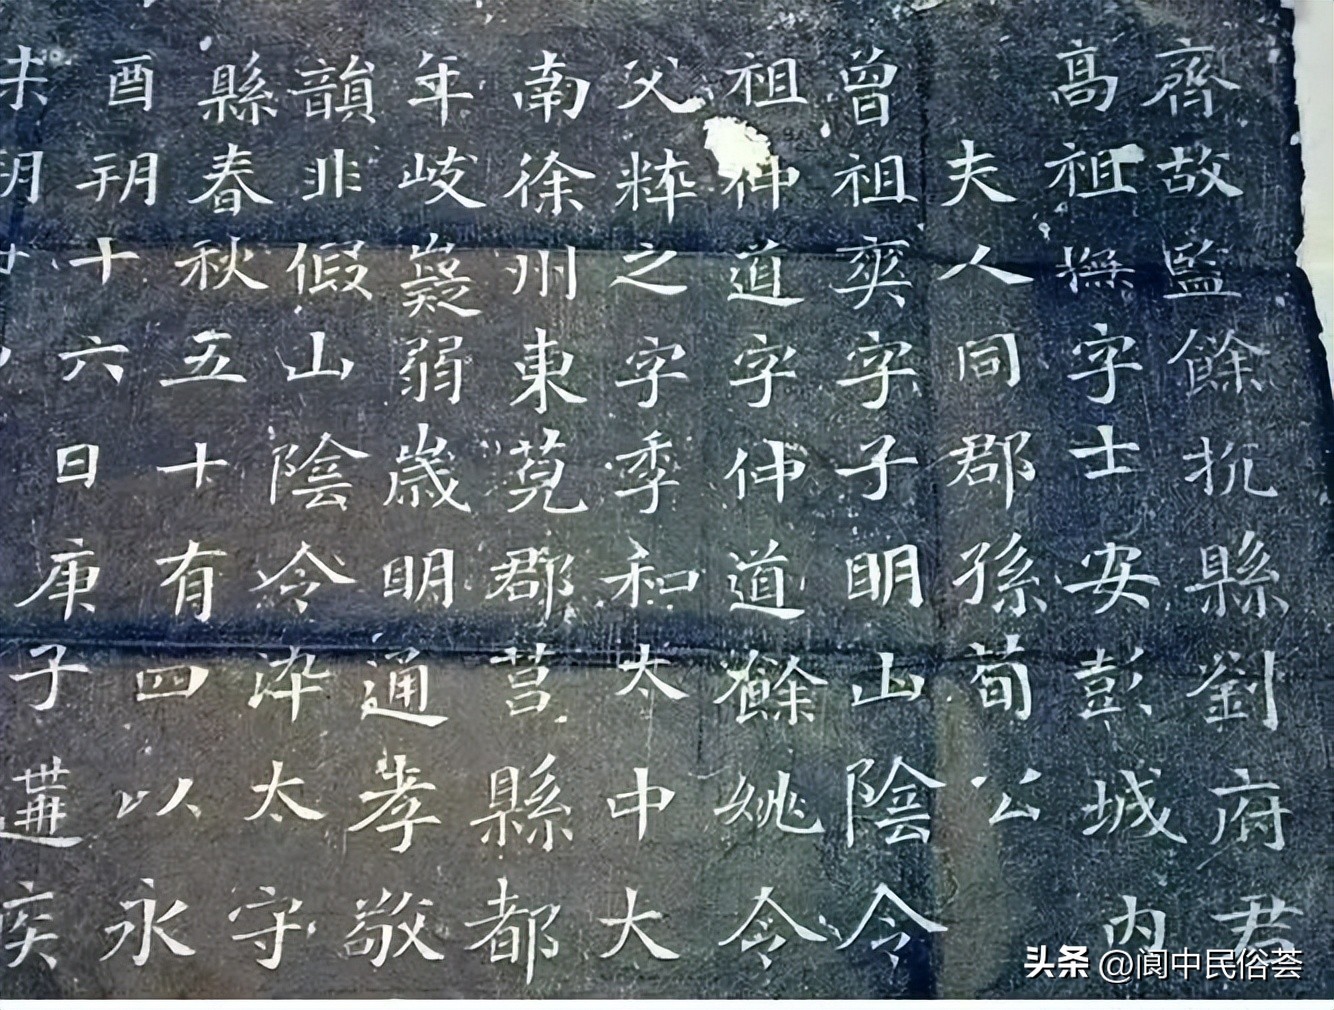 齊故監餘杭縣劉府君
高祖撫字士安彭城內
夫人同郡孫荀公
曾祖爽字子明山陰令
祖仲道字仲道餘姚令
父粹之字季和太中大
南徐州東莞郡莒縣都
年岐嶷弱歲明通孝敬
韻非假山陰令沈太守
縣春秋五十有四以永
酉朔十六日庚子遘疾
未朔
头条 @阆中民俗荟